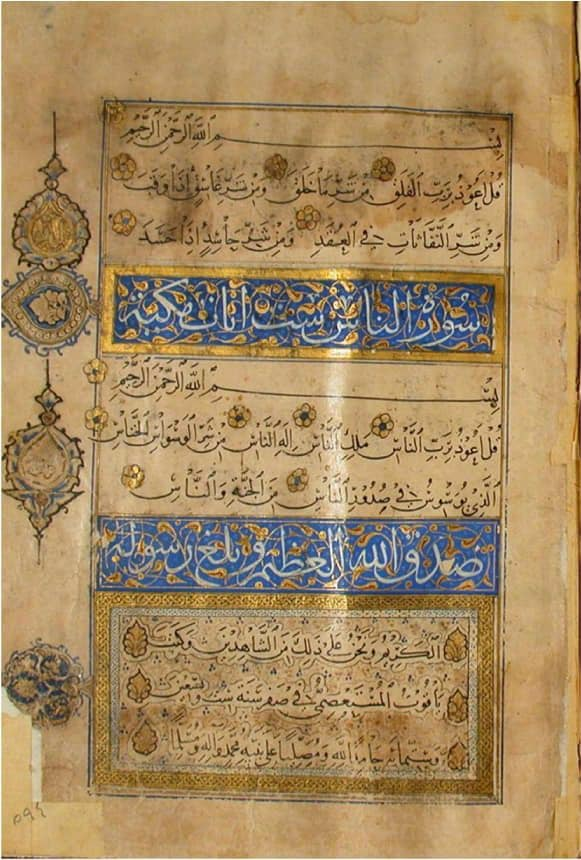 بِسْمِ اللهِ الرَّحْمٰنِ الرَّحِيمِ
قُلْ أَعُوذُ بِرَبِّ الْفَلَقِ مِنْ شَرِّ مَا خَلَقَ وَمِنْ شَرِّ غَاسِقٍ إِذَا وَقَبَ
وَمِنْ شَرِّ النَّفَّاثَاتِ فِي الْعُقَدِ وَمِنْ شَرِّ حَاسِدٍ إِذَا حَسَدَ
سورة الناس ست آيات مكية
بِسْمِ اللهِ الرَّحْمٰنِ الرَّحِيمِ
قُلْ أَعُوذُ بِرَبِّ النَّاسِ مَلِكِ النَّاسِ إِلٰهِ النَّاسِ مِنْ شَرِّ الْوَسْوَاسِ الْخَنَّاسِ
الَّذِي يُوَسْوِسُ فِي صُدُورِ النَّاسِ مِنَ الْجِنَّةِ وَالنَّاسِ
صدق الله العظيم وبلغ رسوله
الْكَرِيمُ وَنَحْنُ عَلَى ذَلِكَ مِنَ الشَّاهِدِينَ وَكَتَبَ
يَاقُوتُ الْمُسْتَعْصِمِيُّ فِي صَفَرِ سَنَةِ سِتٍّ وَتِسْعِينَ
وَسِتِّمِائَةٍ حَامِدًا لِلّٰهِ وَمُصَلِّيًا عَلَى نَبِيِّهِ مُحَمَّدٍ وَآلِهِ وَمُسَلِّمًا